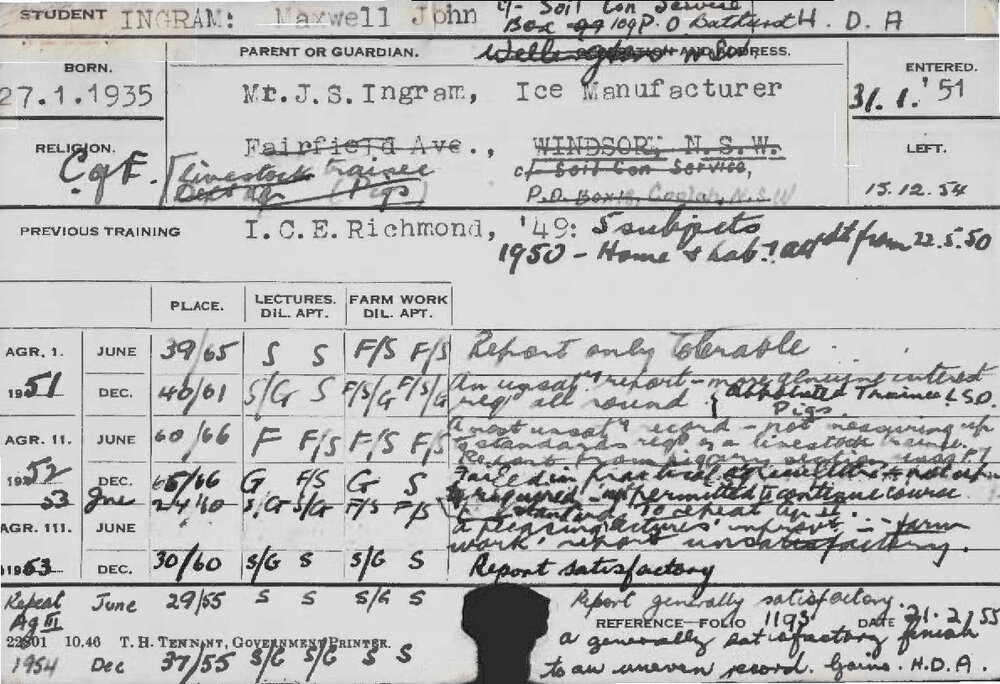 STUDENT INGRAM: Maxwell John c/- Soil Con Service H. D. A
Box 109 P.O Bathurst
PARENT OR GUARDIAN. AND ADDRESS.
Wellington N.S.W.
BORN. ENTERED.
27.1.1935 Mr. J.S. Ingram, Ice Manufacturer 31.1.'51
RELIGION. Fairfield Ave., WINDSOR, N.S.W. LEFT.
C of E. Livestock trainee c/ Soil Con Service,
(Pigs) P.O. Box N.S.W 15.12.54
PREVIOUS TRAINING I.C.E. Richmond, '49: 5 subjects
1950 - Home & Lab. asst from 22.5.50
PLACE. LECTURES. DIL. APT. FARM WORK DIL. APT.
AGR. 1. JUNE 39/65 S S F/S F/S Report only tolerable.
1951 DEC. 40/61 S/G S F/S/G F/S/G An unsaty report - more genuine interest
req all round. Appointed Trainee L.S.O. Pigs.
AGR. 11. JUNE 60/66 F F/S F/S F/S A most unsaty record - not measuring up
to standards req of a livestock trainee.
Report from piggery section unsaty
1952 DEC. 65/66 G F/S G S Failed in practical not up
53 Jne 24/60 S/G S/G F/S F/S to required permitted to continue course
standard. to repeat
AGR. 111. JUNE A pleasing lectures' improvt. - farm
work' report unsatisfactory.
1953 DEC. 30/60 S/G S S/G S Report satisfactory
Repeat Ag III June 29/55 S S S/G S Report generally satisfactory.
REFERENCE-FOLIO 1193 DATE 21.2.55
22801 10.46 T. H. TENNANT, GOVERNMENT PRINTER.
1954 Dec 37/55 S/G S/G S S a generally satisfactory finish
to an uneven record. Gains H.D.A.